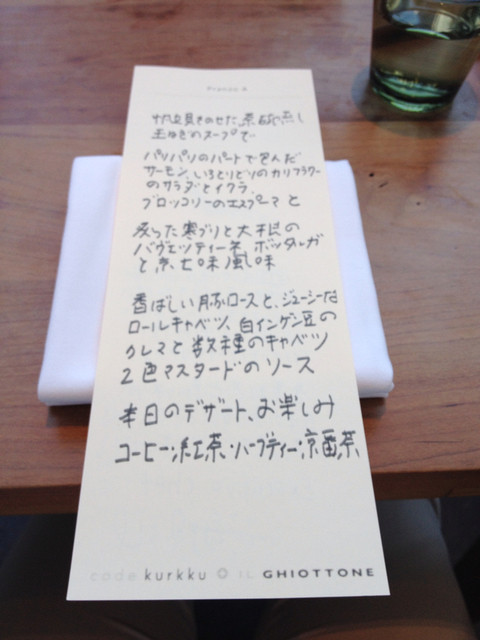 Pranzo A
帆立貝をのせた、茶碗蒸し
玉ねぎのスープで
パリパリのパートで包んだ
サーモン、いろとりどりのカリフラワー
のサラダとイクラ、
ブロッコリーのエスプーマと
炙った寒ブリと大根の
バヴェッティーネ ボッタルガ
と京七味風味
香ばしい豚ロースと、ジューシーな
ロールキャベツ、白インゲン豆の
クレマと数種のキャベツ
2色マスタードのソース
本日のデザート、お楽しみ
コーヒー・紅茶・ハーブティー・京番茶
code kurkku IL GHIOTTONE